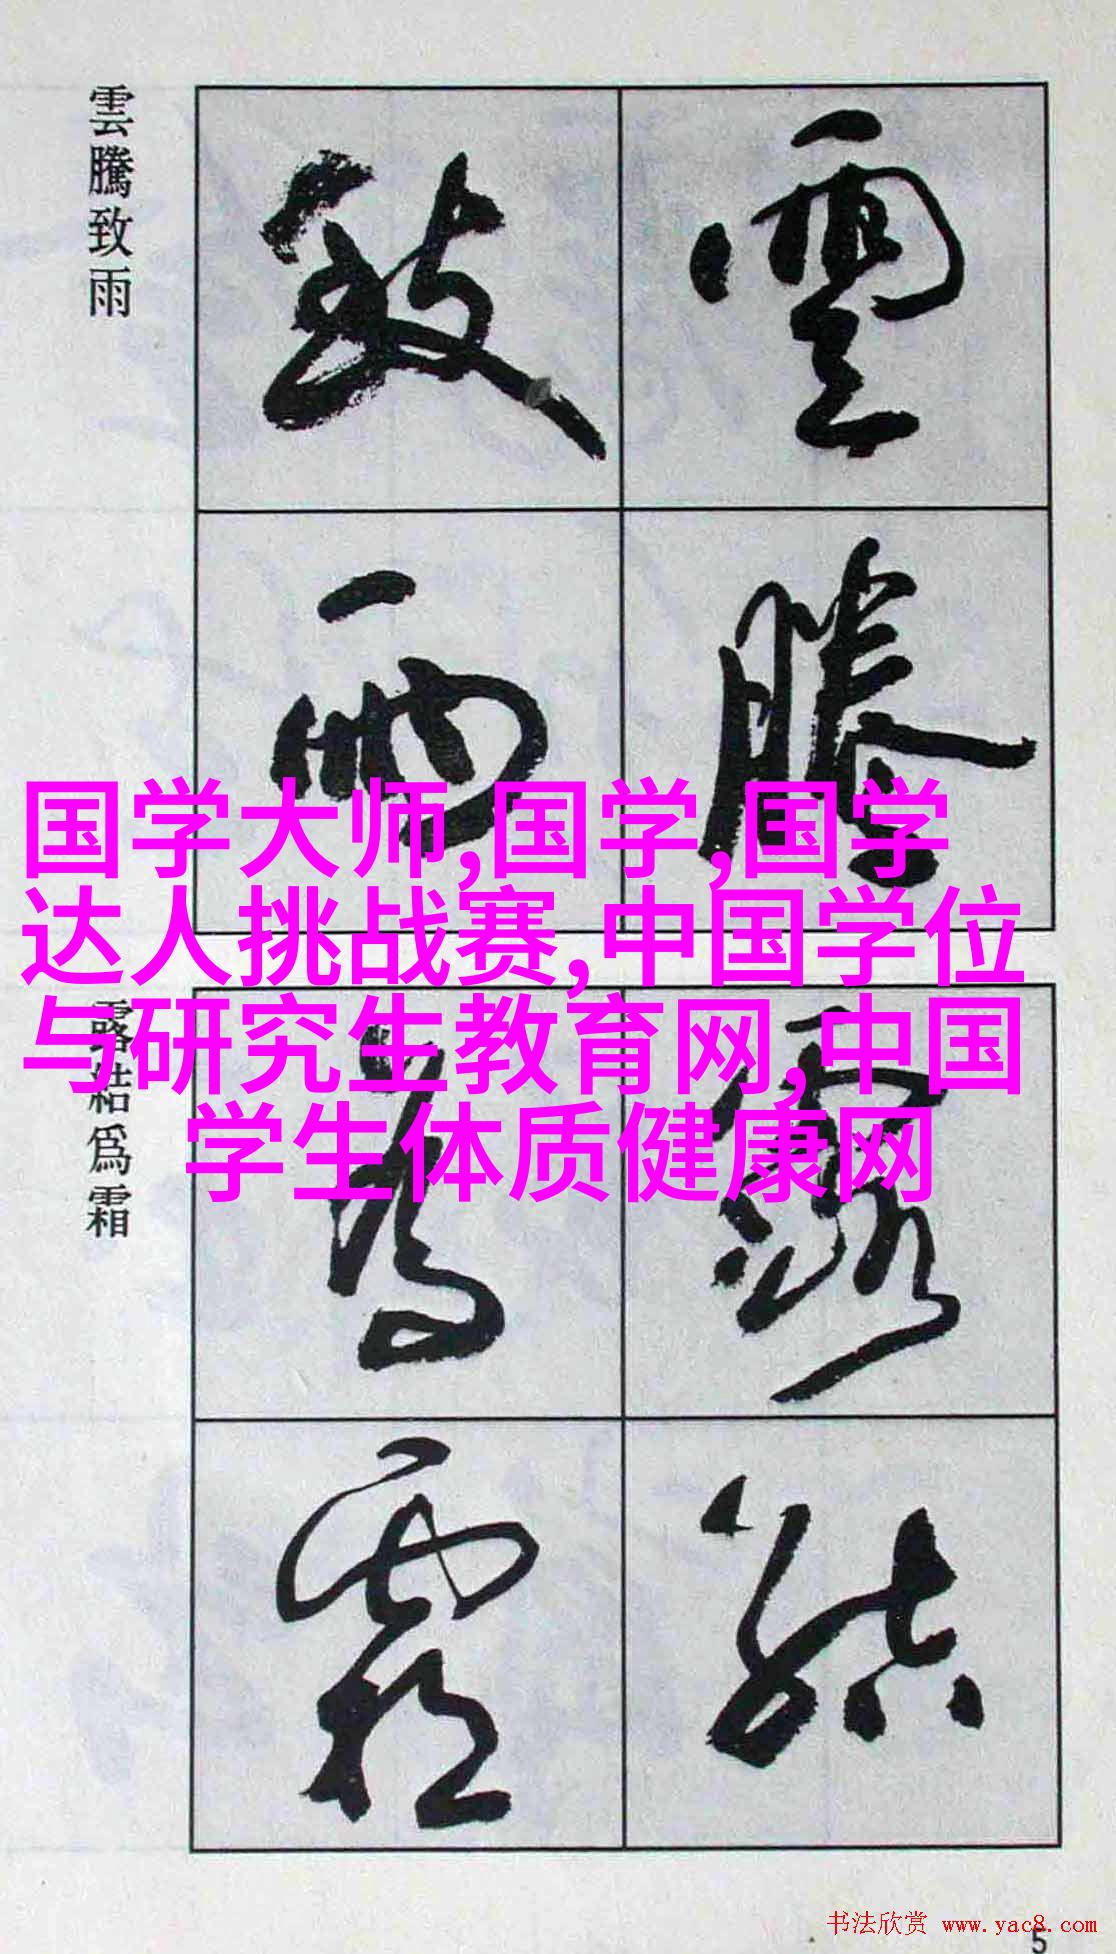 雲騰致雨
雲騰
致雨
国学大师,国学,国学
达人挑战赛,中国学位
与研究生教育网,中国
学生体质健康网
露結爲霜
露結
爲霜
书法欣赏 www.yac8.com
5